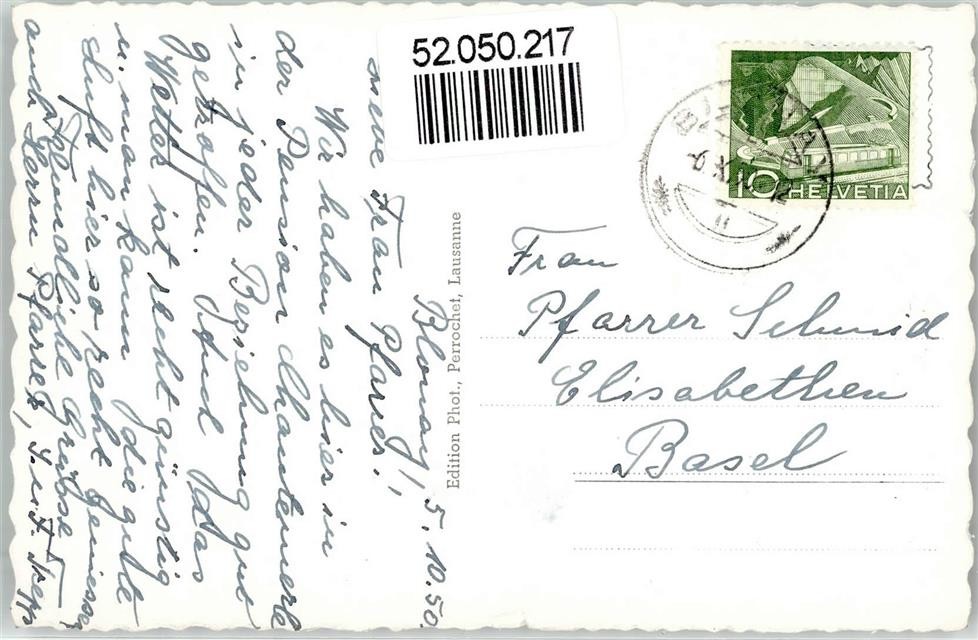 52.050.217
HELVETIA
10
Blonay, 5. 10. 50.
Frau Pfarrer!
Wir haben es hier in
der Pension Chantemerle
in jeder Beziehung gut
getroffen. Und das
Wetter ist recht günstig
u. man kann die gute
Luft hier so recht geniessen
Freundliche Grüsse
auch Herrn Pfarrer,
Edition Phot., Perrochet, Lausanne
Frau
Pfarrer Schmid
Elisabethen
Basel